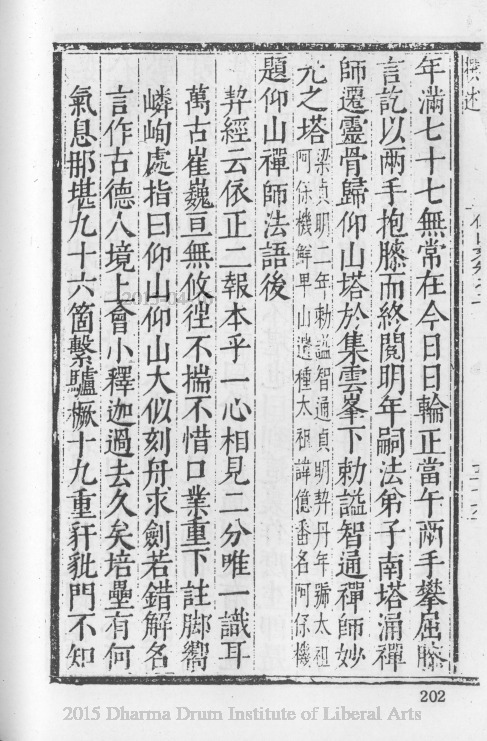 年滿七十七無常在今日日輪正當午兩手攀屈膝
言訖以兩手抱膝而終閱明年嗣法弟子南塔涌禪
師遷靈骨歸仰山塔於集雲峯下勅謚智通禪師妙
光之塔梁貞明二年勅謚智通貞明契丹年號太祖
阿保機鮮卑山遺種太祖諱億番名阿保機
題仰山禪師法語後
契經云依正二報本乎一心相見二分唯一識耳
萬古崔巍亘無攸徃不揣不惜口業重下註脚嚮
嶙峋處指曰仰山仰山大似刻舟求劍若錯解名
言作古德人境上會小釋迦過去久矣培壘有何
氣息那堪九十六箇繫驢橛十九重豻豼門不知
202
2015 Dharma Drum Institute of Liberal Arts